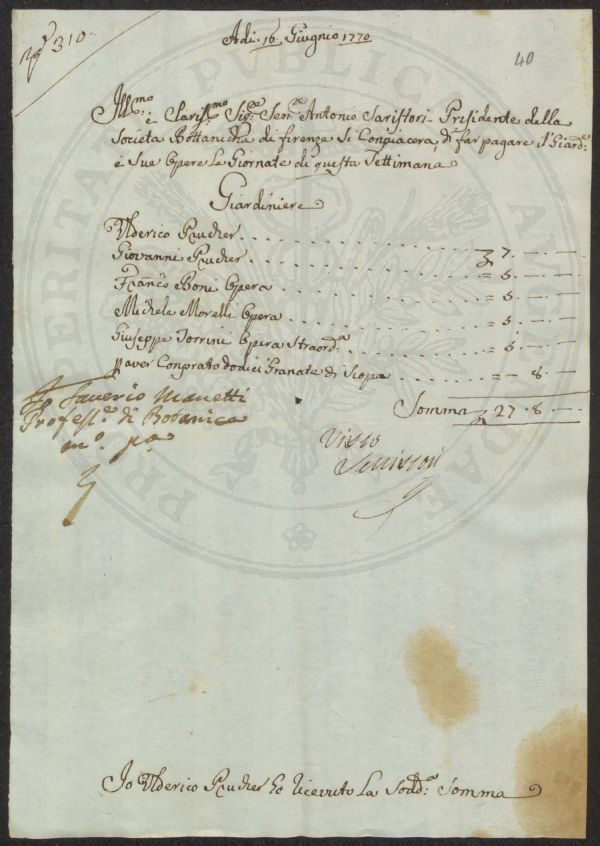 N° 310
Adi. 16 Giugnio 1770
40
Ill:mo e Clariss:mo Sig:re Sen:re Antonio Saristori Presidente della
Societa Bottanicha di firenze Si Conpiacera, di far pagare il Giard:e
e Sue Opere Le Giornate di questa Settimana
Giardiniere
Ulderico Prucker
Giovanni Prucker 7
Fran:co Boni Opera = 5
Michele Morelli Opera = 5
Giuseppe Torrini Opera Straord:a = 5
p aver Conprato dodici Granate di Scopa = 8
Somma 27. 8
Saverio Manetti
Profess:e di Botanica
m:o p:a
Visto
Io Ulderico Prucker ho ricevuto La Sodd:a Somma
PUBLICAE
PROSPERITATIS